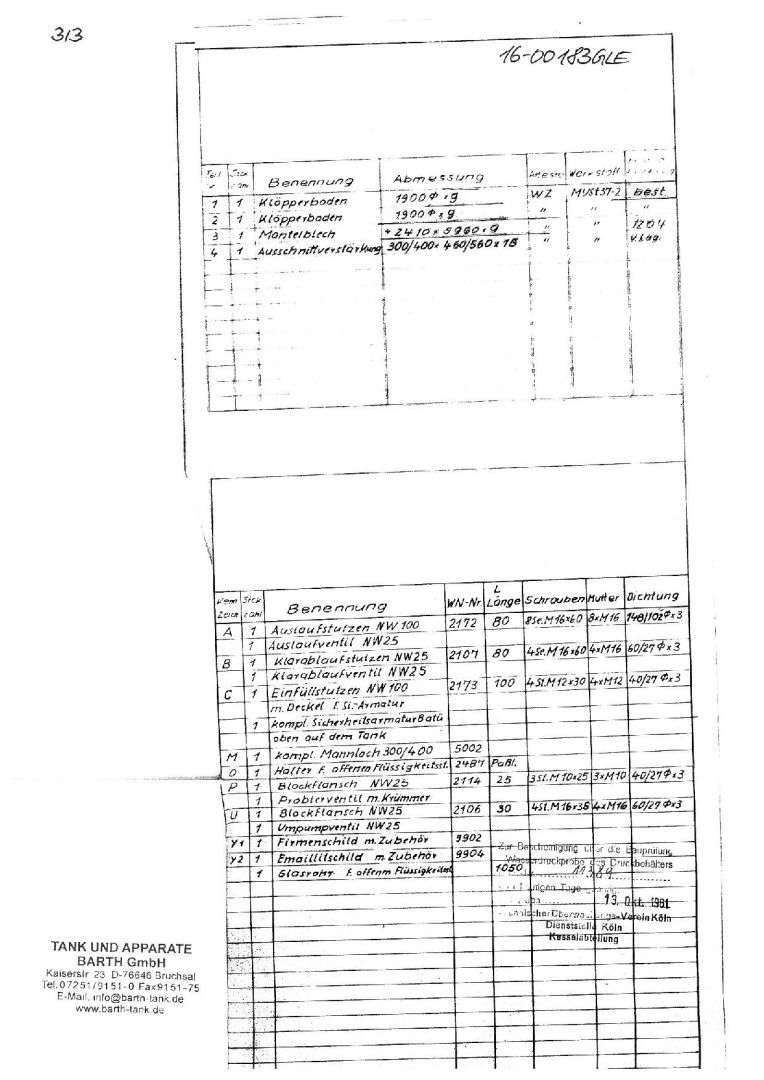 313
16-00183GLE
Teil Stck Benennung Abmessung Werkstoff
1 1 Klöpperboden 1900 Φ × 9 WZ MUSt37-2 best.
2 1 Klöpperboden 1900 Φ × 9 " " "
3 1 Mantelblech + 2410 × 5960 × 9 " " 1204
4 1 Ausschnittverstärkung 300/400 × 460/560 × 15 " " v. Lag.
Kenn Zeich Stck zahl Benennung WN-Nr L Länge Schrauben Mutter Dichtung
A 1 Auslaufstutzen NW 100 2172 80 8Se.M16x60 8xM16 148/102 Φ x 3
1 Auslaufventil NW25
B 1 Klarablaufstutzen NW25 2107 80 4Se.M16x60 4xM16 60/27 Φ x 3
1 Klarablaufventil NW25
C 1 Einfüllstutzen NW 100 2173 100 4St.M12x30 4xM12 40/27 Φ x 3
m. Deckel f. Si.-Armatur
1 kompl. Sicherheitsarmatur Batü
oben auf dem Tank
M 1 kompl. Mannloch 300/400 5002
O 1 Halter f. offenen Flüssigkeitsst. 2487 Paßl.
P 1 Blockflansch NW25 2114 25 3St.M10x25 3xM10 40/27 Φ x 3
1 Probierventil m. Krümmer
U 1 Blockflansch NW25 2106 30 4St.M16x35 4xM16 60/27 Φ x 3
1 Umpumpventil NW25
Y1 1 Firmenschild m. Zubehör 9902
Y2 1 Emaillilschild m. Zubehör 9904
1 Glasrohr f. offenm Flüssigkeitsst. 1050
Zur Bescheinigung über die Bauprüfung
Wasserdruckprobe des Druckbehälters
11389
13. Okt. 1981
-Verein Köln
Dienststelle Köln
Kesselabteilung
TANK UND APPARATE
BARTH GmbH
Kaiserstr 23 D-76646 Bruchsal
Tel.07251/9151-0 Fax9151-75
E-Mail. info@barth-tank.de
www.barth-tank.de